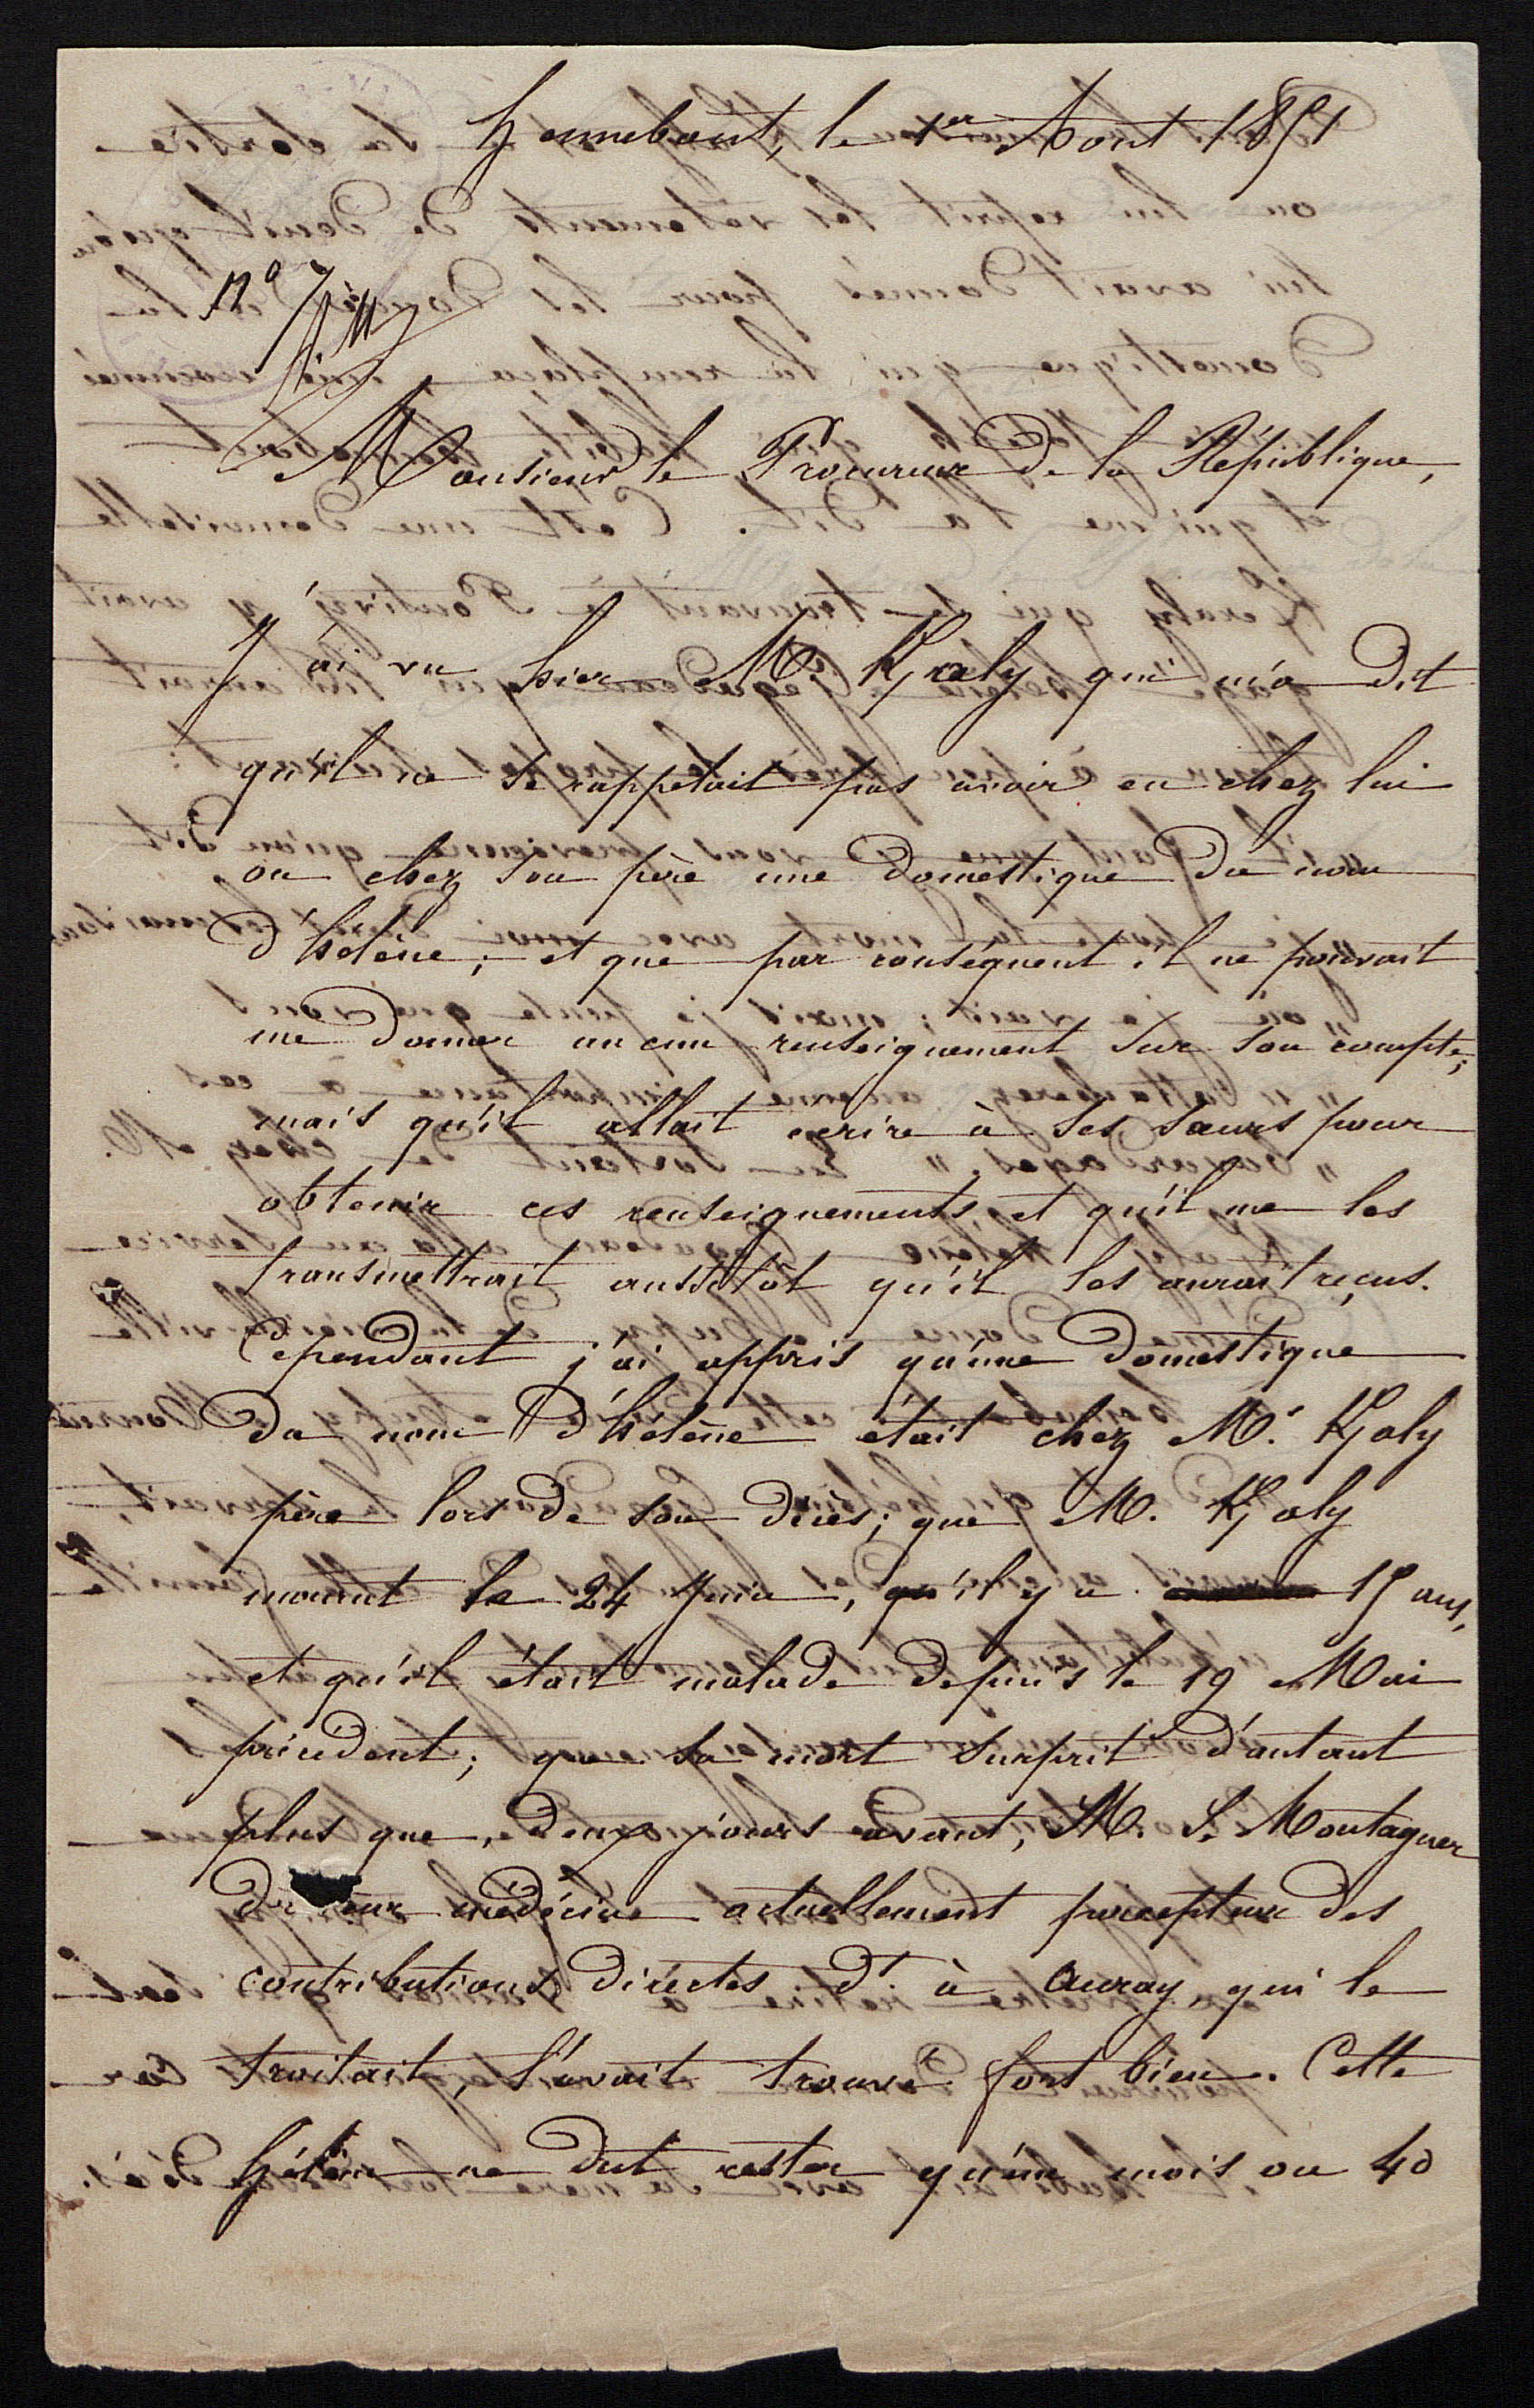 Hennebont, le 1er Aout 1851
n° 7
Monsieur le Procureur de la République,
J'ai vu hier Mr. Kjaly qui m'a dit
qu'il ne se rappelait pas avoir eu chez lui
ou chez son père une domestique du nom
d'hélène; et que par conséquent il ne pouvait
me donner aucun renseignement sur son compte;
mais qu'il allait ecrire à ses sœurs pour
obtenir ces renseignements, et qu'il me les
transmettrait aussitôt qu'il les aurait reçus.
Cependant j'ai appris qu'une domestique
du nom d'hélène était chez Mr. Kjaly
père lors de son décès; que M. Kjaly
mourut le 24 Juin, qu'il y a 15 ans,
et qu'il était malade depuis le 19 Mai
précédent; que sa mort surprit d'autant
plus que, deux jours avant, M. Le Montagner
médécine actuellement percepteur des
contributions directes dt. à Auray, qui le
traitait, l'avait trouvé fort bien. Cette
hélène ne dut rester qu'un mois ou 40